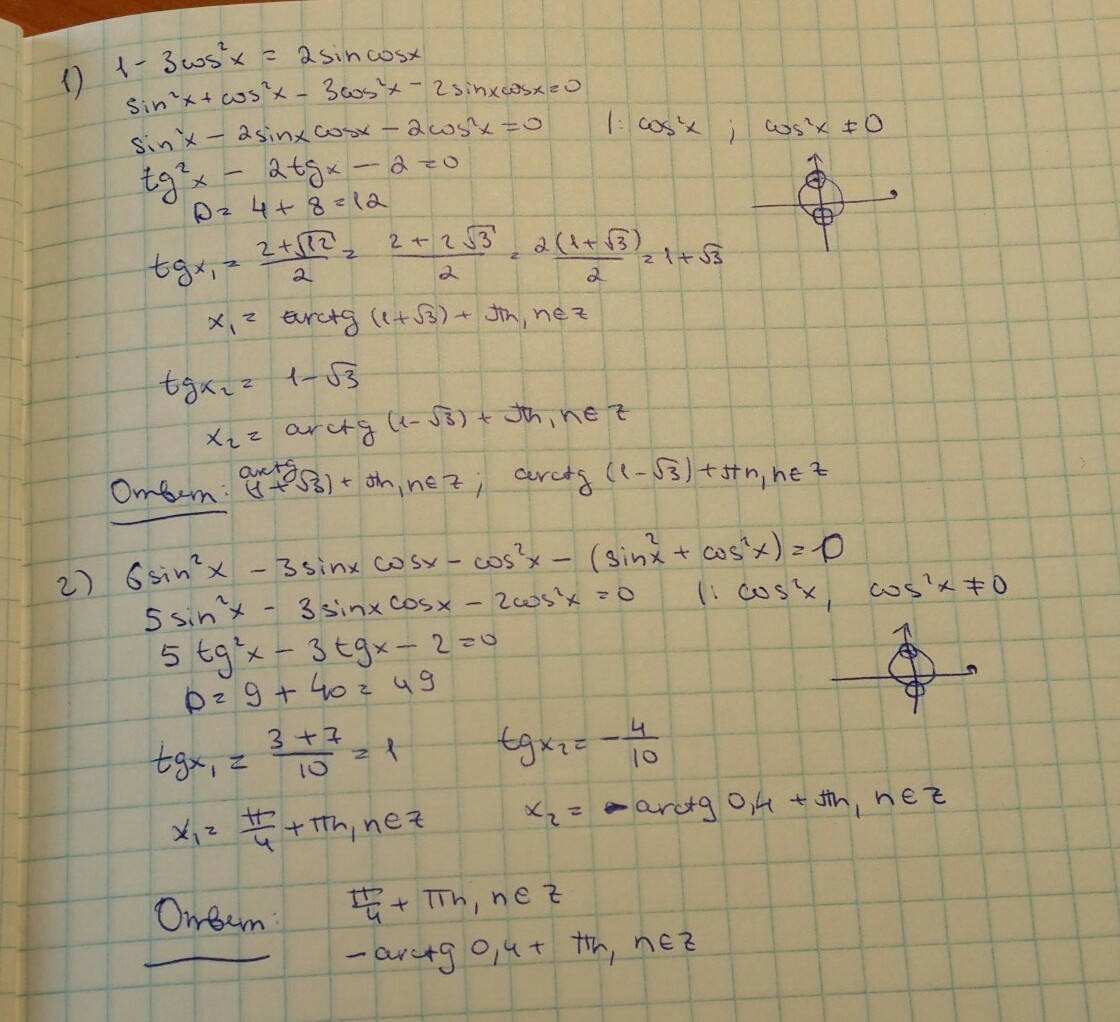 1) 1 - 3cos²x = 2sincosx
sin²x + cos²x - 3cos²x - 2sinxcosx=0
sin²x - 2sinxcosx - 2cos²x = 0 |: cos²x ; cos²x ≠ 0
tg²x - 2tgx - 2 = 0
D = 4 + 8 = 12
tgx₁ = (2+√12)/2 = (2+2√3)/2 = 2(1+√3)/2 = 1+√3
x₁ = arctg (1+√3) + πn, n∈Z
tgx₂ = 1-√3
x₂ = arctg (1-√3) + πn, n∈Z
Ответ: arctg (1+√3) + πn, n∈Z ; arctg (1-√3) + πn, n∈Z
2) 6sin²x - 3sinx cosx - cos²x - (sin²x + cos²x) = 0
5sin²x - 3sinxcosx - 2cos²x = 0 |: cos²x, cos²x ≠ 0
5tg²x - 3tgx - 2 = 0
D = 9 + 40 = 49
tgx₁ = (3+7)/10 = 1 tgx₂ = -4/10
x₁ = π/4 + πn, n∈Z x₂ = -arctg 0,4 + πn, n∈Z
Ответ: π/4 + πn, n∈Z
-arctg 0,4 + πn, n∈Z